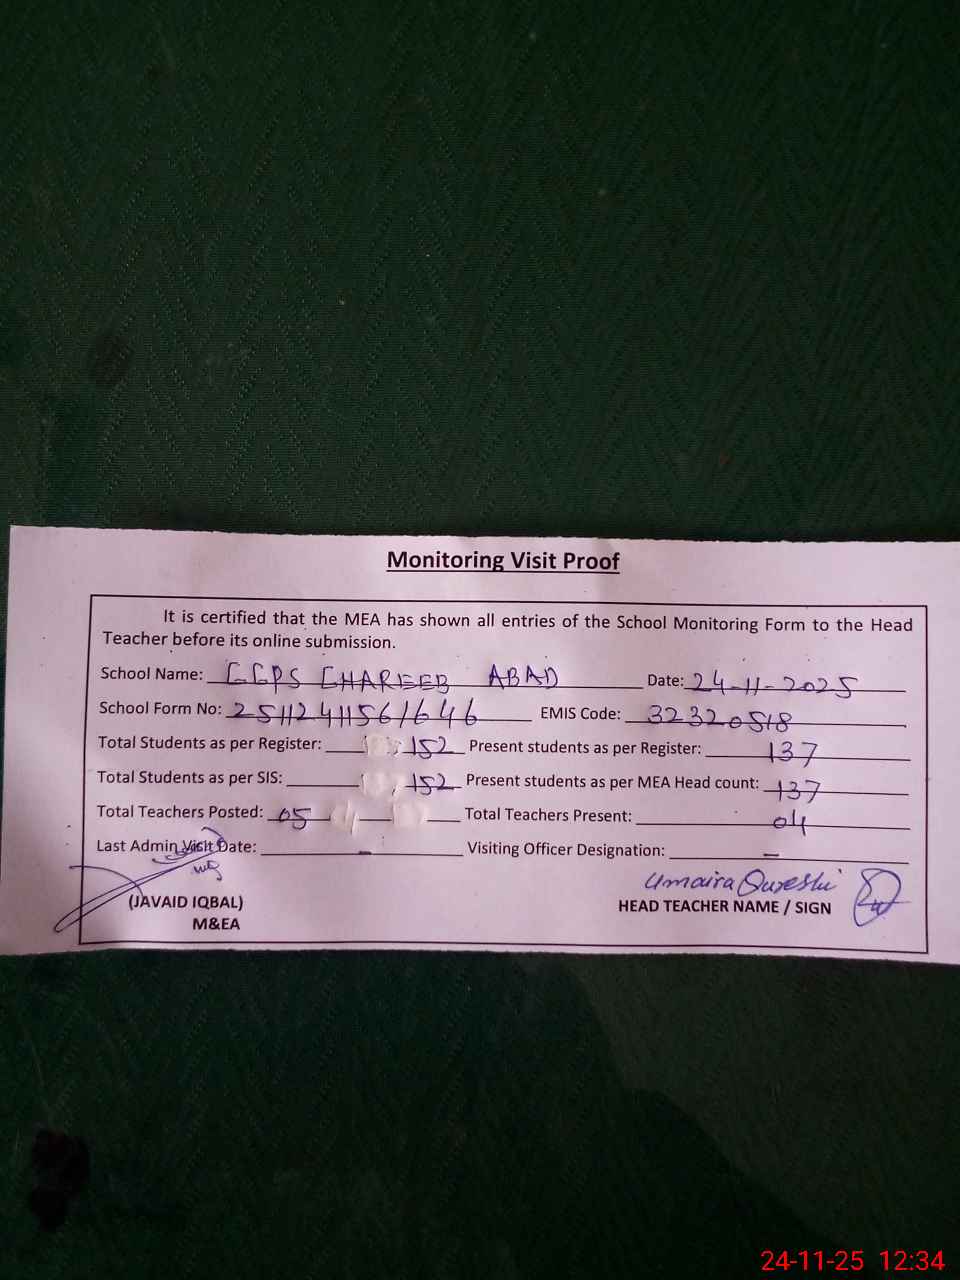 Monitoring Visit Proof
It is certified that the MEA has shown all entries of the School Monitoring Form to the Head
Teacher before its online submission.
School Name: GGPS GHAREEB ABAD Date: 24-11-2025
School Form No: 25112411561646 EMIS Code: 32320518
Total Students as per Register: 152 Present students as per Register: 137
Total Students as per SIS: 152 Present students as per MEA Head count: 137
Total Teachers Posted: 05 Total Teachers Present: 04
Last Admin Visit Date: - Visiting Officer Designation: -
Umaira Qureshi
(JAVAID IQBAL) HEAD TEACHER NAME / SIGN
M&EA
24-11-25 12:34